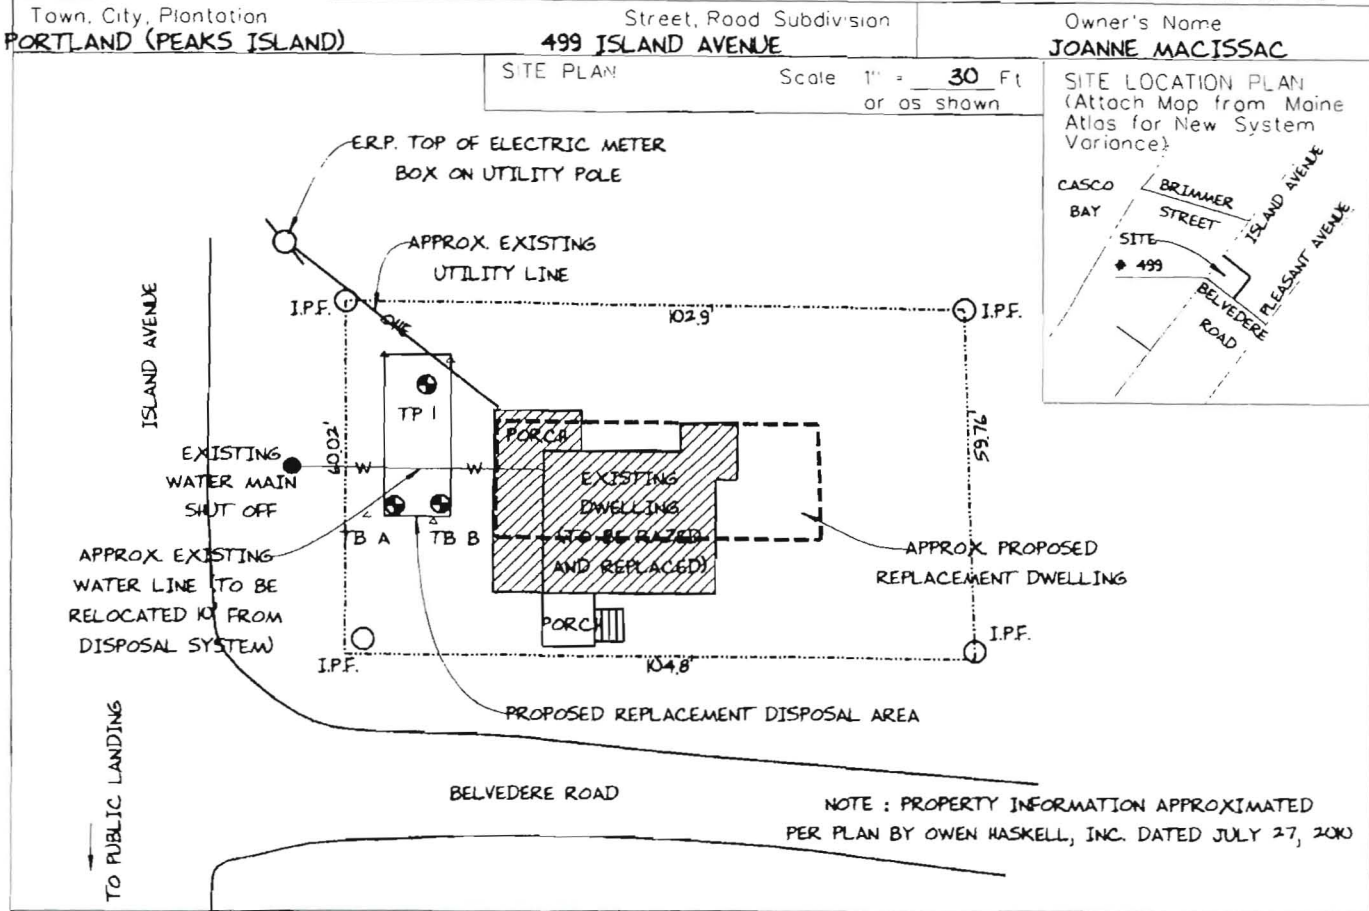 Town, City, Plantation
PORTLAND (PEAKS ISLAND)
Street, Road Subdivision
499 ISLAND AVENUE
Owner's Name
JOANNE MACISSAC
SITE PLAN
Scale 1" = 30 Ft
or as shown
SITE LOCATION PLAN
(Attach Map from Maine
Atlas for New System
Variance)
CASCO
BAY
BRIMMER
STREET
ISLAND AVENUE
PLEASANT AVENUE
SITE
# 499
BELVEDERE
ROAD
E.R.P. TOP OF ELECTRIC METER
BOX ON UTILITY POLE
APPROX. EXISTING
UTILITY LINE
I.P.F.
OHE
102.9'
I.P.F.
ISLAND AVENUE
TP 1
60.02'
59.76'
PORCH
EXISTING
WATER MAIN
SHUT OFF
W
W
EXISTING
DWELLING
(TO BE RAZED
AND REPLACED)
TB A
TB B
APPROX. EXISTING
WATER LINE (TO BE
RELOCATED 10' FROM
DISPOSAL SYSTEM)
APPROX. PROPOSED
REPLACEMENT DWELLING
PORCH
I.P.F.
I.P.F.
104.8'
PROPOSED REPLACEMENT DISPOSAL AREA
TO PUBLIC LANDING
BELVEDERE ROAD
NOTE : PROPERTY INFORMATION APPROXIMATED
PER PLAN BY OWEN HASKELL, INC. DATED JULY 27, 2010